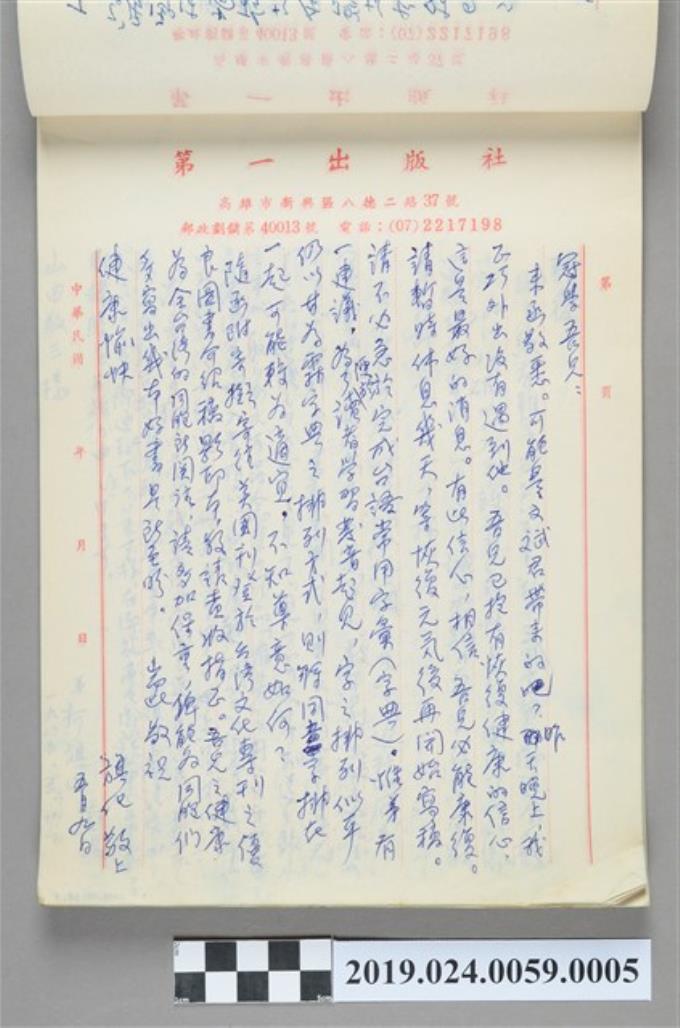 第一出版社
高雄市新興區八德二路37號
郵政劃儲第40013號 電話：(07)2217198
第 頁
冠學吾兄：
來函敬悉。可能是文斌君帶來的吧？昨天晚上，我
正巧外出沒有遇到他。吾兄已抱有恢復健康的信心，
這是最好的消息。有此信心，相信吾兄必能康復。
請暫時休息幾天，等恢復元氣後再開始寫稿。
請不必急於完成台語常用字彙（字典）。惟弟有
一建議，為了讀者學習發音起見，字之排列似乎
仍以甘為霖字典之排列方式，則將同音字排在
一起可能較為適宜。不知尊意如何？
隨函附寄擬寄往英國刊登於台灣文化專刊之優
良圖書介紹稿影印本，敬請查收指正。吾兄之健康
為全台灣的同胞所關注，請多加保重，俾能為同胞們
多寫出幾本好書是所至盼。 耑此敬祝
健康愉快
旗化敬上
五月九日
中華民國 年 月 日
2019.024.0059.0005